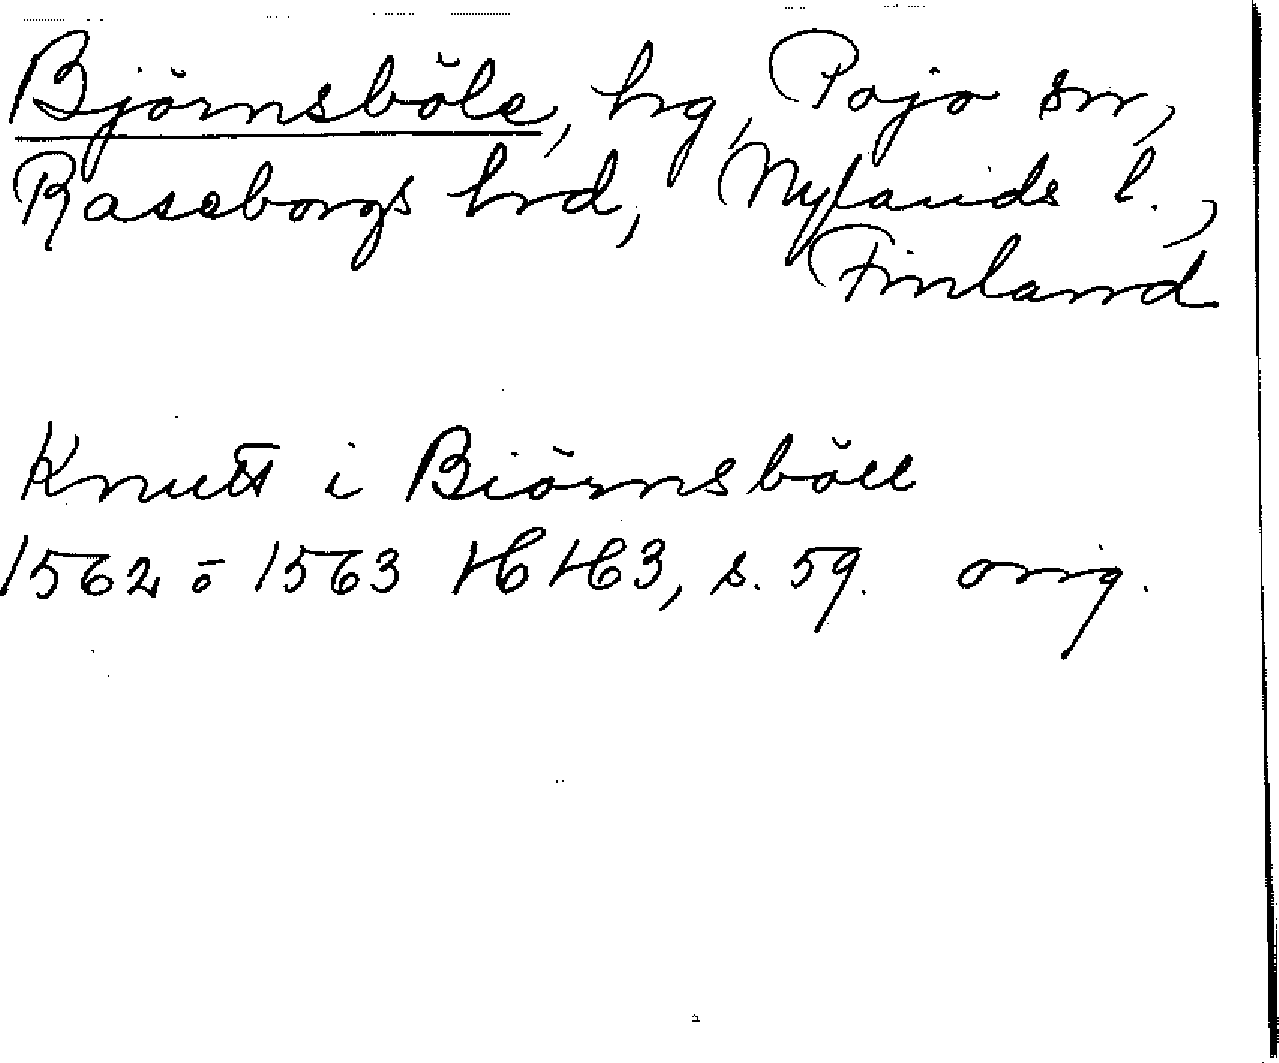 Björnsböle, hg, Pojo sn,
Raseborgs hrd, Nylands l.,
Finland
Knutt i Biörnsböle
1562 o 1563 HH3, s. 59. orig.